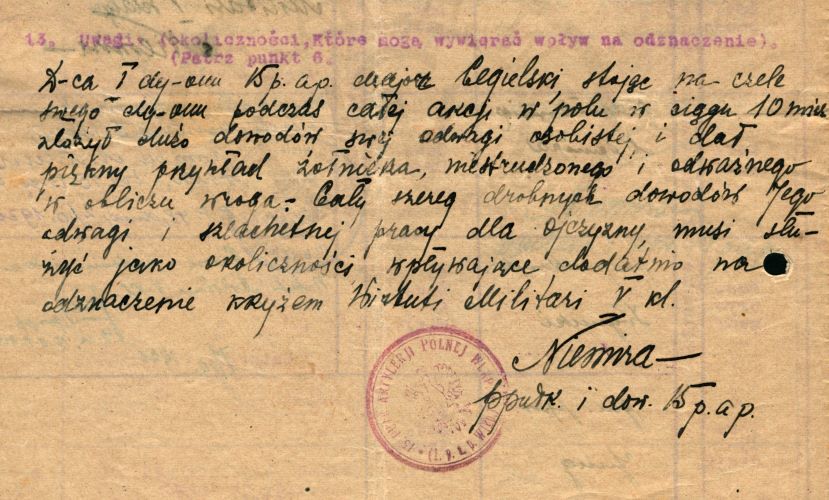 13. Uwagi: (okoliczności, które mogą wywierać wpływ na odznaczenie).
(Patrz punkt 6.
D-ca I dy-onu 15 p. a p. major Cegielski stojąc na czele
swego dy-onu podczas całej akcji w polu w ciągu 10 mies.
złożył dużo dowodów swej odwagi osobistej i dał
piękny przykład żołnierza, niestrudzonego i odważnego
w obliczu wroga. Cały szereg drobnych dowodów Jego
odwagi i szlachetnej pracy dla Ojczyzny, musi słu-
żyć jako okoliczności wpływające dodatnio na
odznaczenie krzyżem Virtuti Militari V kl.
ARTYLERJI POLNEJ
ppułk. i dow. 15 p. a p.